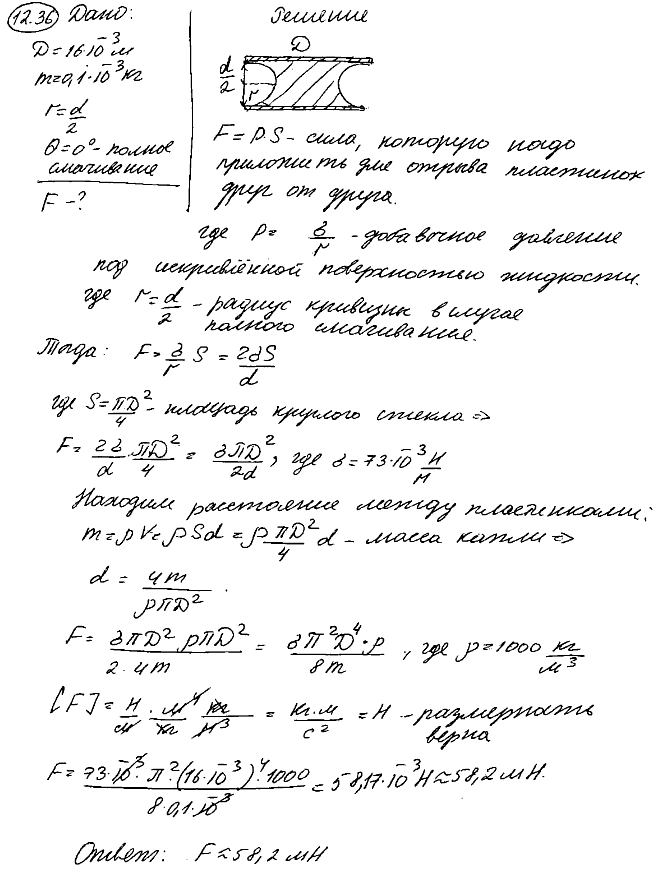 12.36 Дано:
D = 16·10⁻³ м
m = 0,1·10⁻³ кг
r = d/2
θ = 0° - полное
смачивание
F - ?
Решение
D
d/2
r
F = P·S - сила, которую надо
приложить для отрыва пластинок
друг от друга.
где P = σ/r - добавочное давление
под искривлённой поверхностью жидкости.
где r = d/2 - радиус кривизны в случае
полного смачивания.
Тогда: F = σ/r S = 2σS/d
где S = πD²/4 - площадь круглого стекла =>
F = 2σ/d · πD²/4 = σπD²/2d, где σ = 73·10⁻³ Н/м
Находим расстояние между пластинками:
m = ρV = ρSd = ρ πD²/4 d - масса капли =>
d = 4m/ρπD².
F = σπD² ρπD²/2·4m = σπ²D⁴·ρ/8m, где ρ = 1000 кг/м³
[F] = Н/м · м⁴/кг · кг/м³ = кг·м/с² = Н - размерность
верна
F = 73·10⁻³·π²·(16·10⁻³)⁴·1000/8·0,1·10⁻³ = 58,17·10⁻³ Н ≈ 58,2 мН.
Ответ: F ≈ 58,2 мН